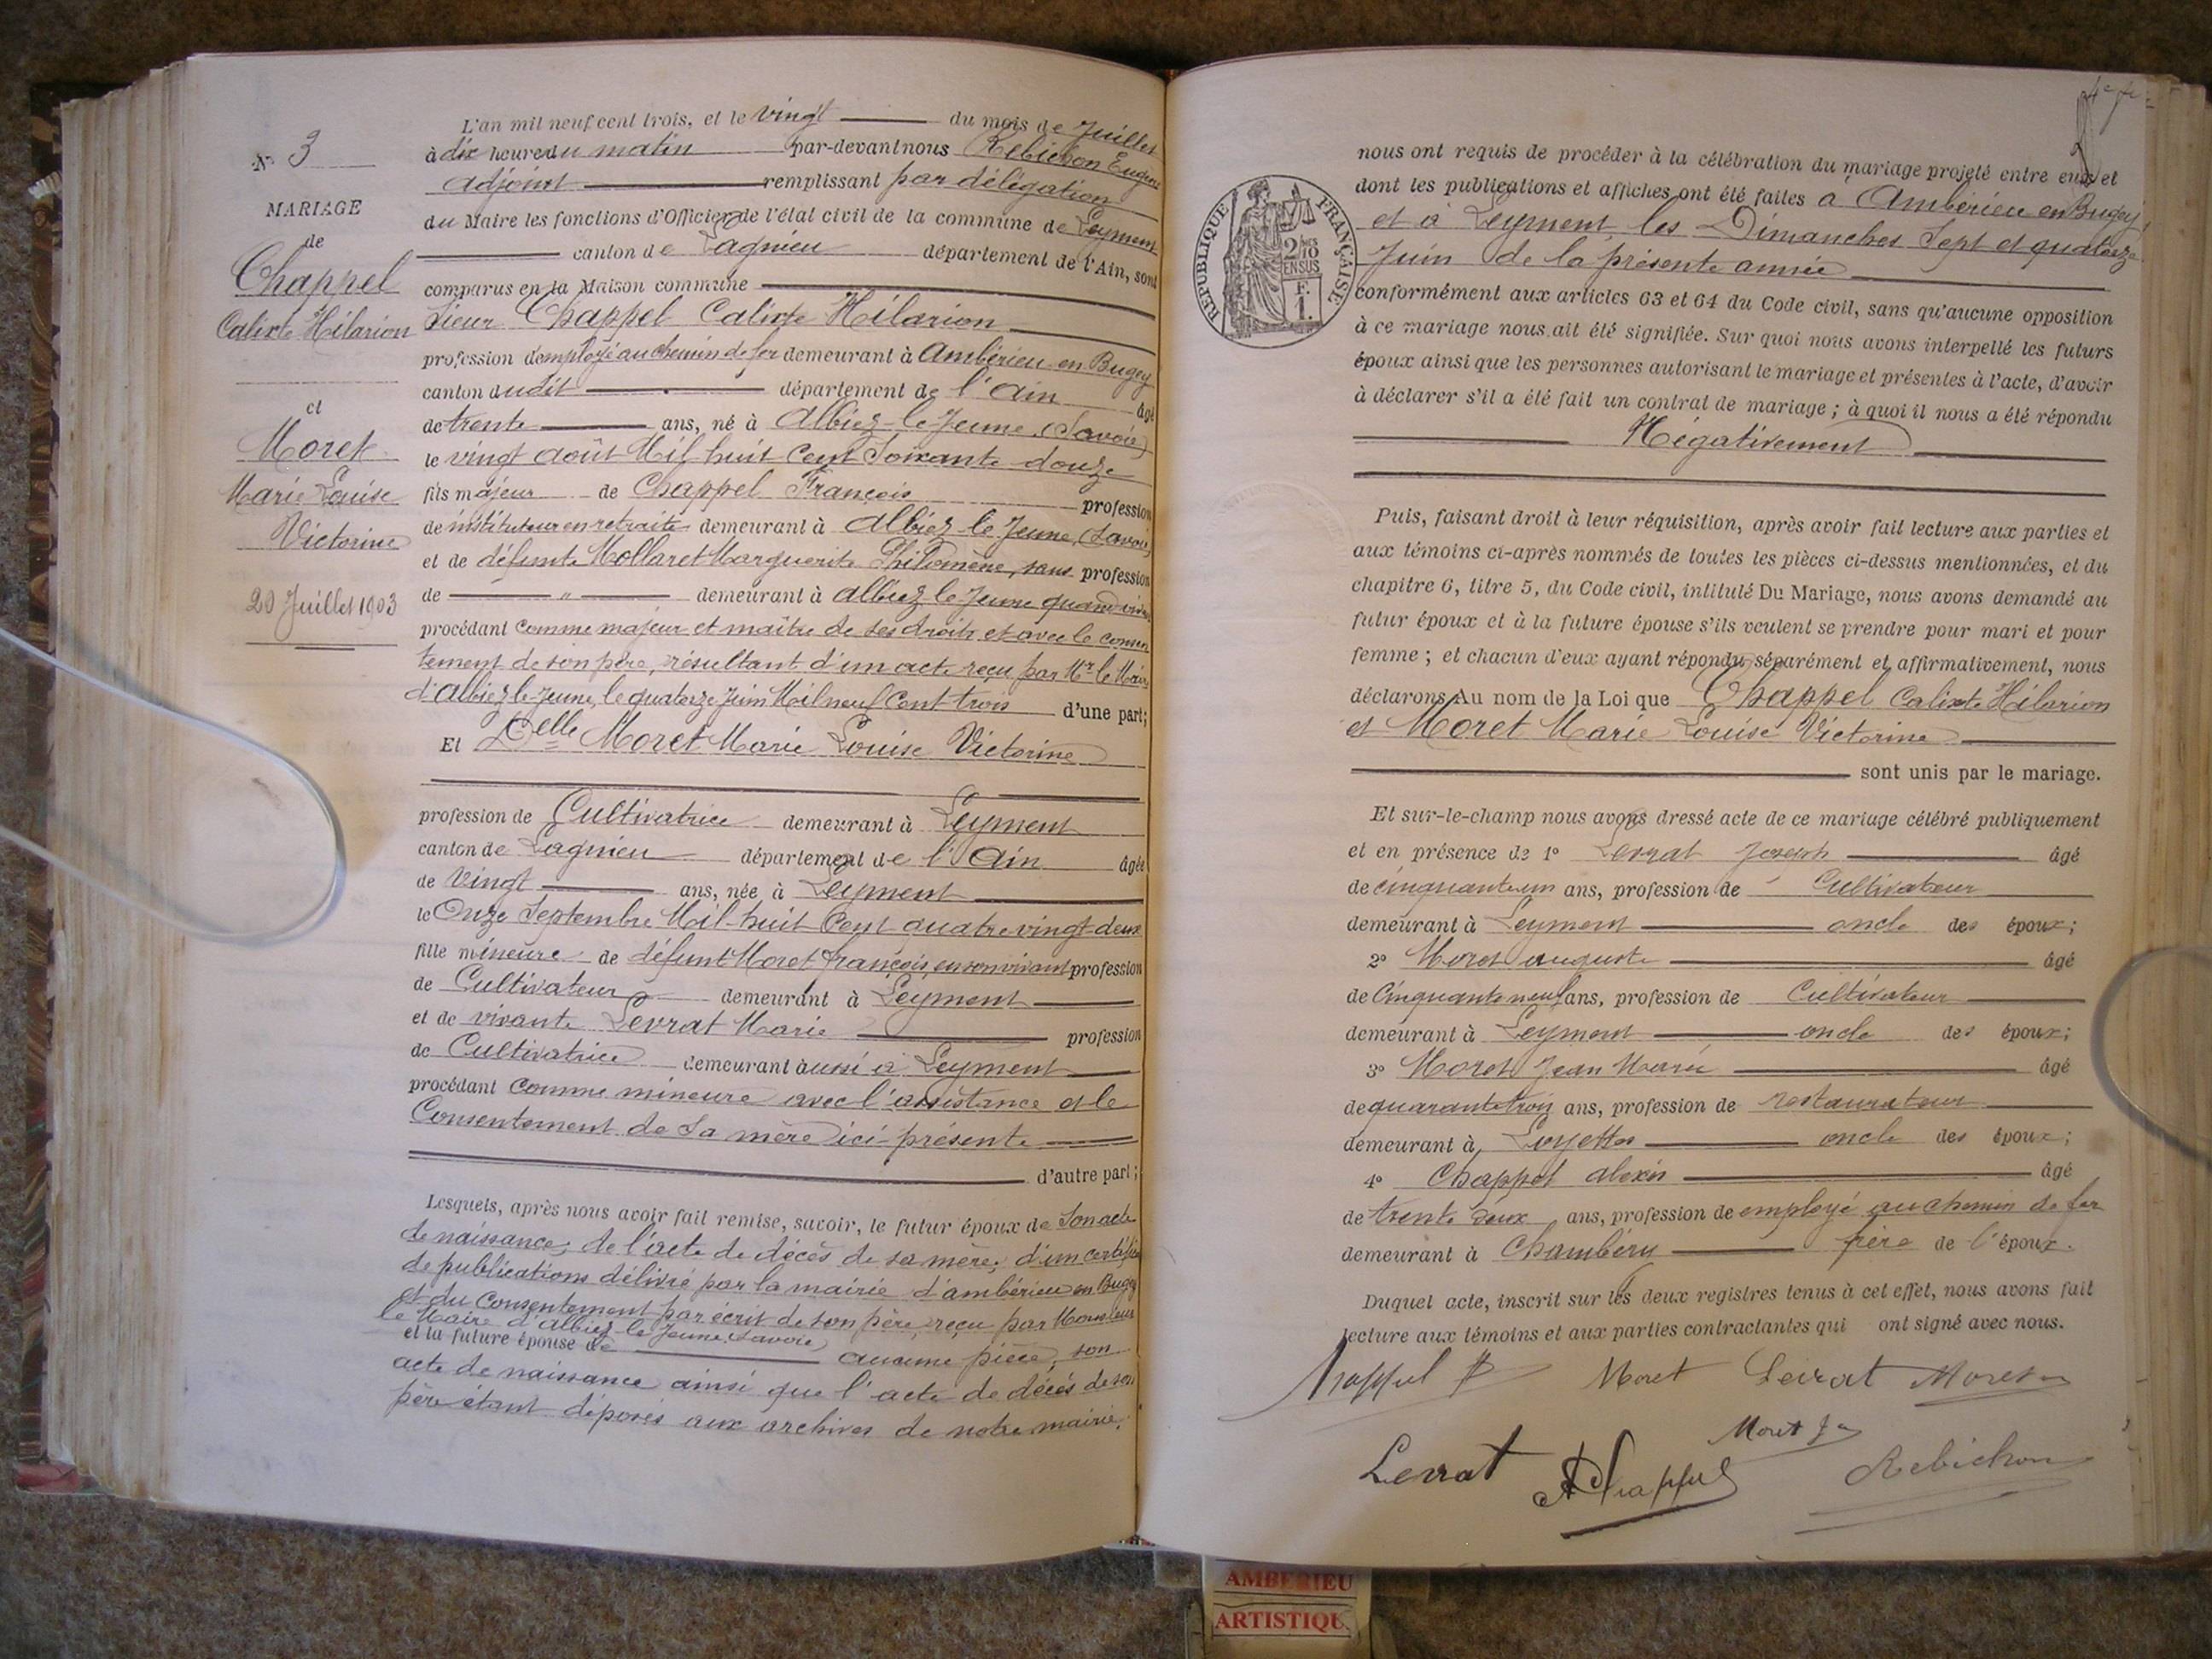 N° 3
MARIAGE
de
Chappel
Calixte Hilarion
et
Moret
Marie Louise
Victorine
20 Juillet 1903
L'an mil neuf cent trois, et le vingt du mois de Juillet
à dix heures du matin par-devant nous Rebichon Eugène
adjoint remplissant par délégation
du Maire les fonctions d'Officier de l'état civil de la commune de Leyment
canton de Lagnieu département de l'Ain, sont
comparus en la Maison commune
Sieur Chappel Calixte Hilarion
profession d'employé au chemin de fer demeurant à Ambérieu en Bugey
canton dudit département de l'Ain âgé
de trente ans, né à Albiez-le-Jeune (Savoie)
le vingt août Mil huit Cent Soixante douze
fils majeur de Chappel François profession
de instituteur en retraite demeurant à Albiez-le-Jeune, (Savoie)
et de défunte Mollaret Marguerite Philomène, sans profession
de " demeurant à Albiez-le-Jeune quand vivait
procédant comme majeur et maître de ses droits et avec le consen
tement de son père, résultant d'un acte reçu par Mr le Maire
d'Albiez-le-Jeune, le quatorze Juin Mil neuf Cent trois d'une part;
Et Delle Moret Marie Louise Victorine
profession de Cultivatrice demeurant à Leyment
canton de Lagnieu département de l'Ain âgée
de Vingt ans, née à Leyment
le Onze Septembre Mil huit Cent quatre vingt deux
fille mineure de défunt Moret François, en son vivant profession
de Cultivateur demeurant à Leyment
et de vivante Levrat Marie profession
de Cultivatrice demeurant aussi à Leyment
procédant comme mineure avec l'assistance et le
Consentement de sa mère ici présente
d'autre part;
Lesquels, après nous avoir fait remise, savoir, le futur époux de Son acte
de naissance, de l'acte de décès de sa mère, d'un certificat
de publications délivré par la mairie d'ambérieu en Bugey
et du Consentement par écrit de son père, reçu par Monsieur
le Maire d'Albiez-le-Jeune, Savoie,
et la future épouse de aucune pièce, son
acte de naissance ainsi que l'acte de décès de son
père étant déposés aux archives de notre mairie.
RÉPUBLIQUE FRANÇAISE
2/10
EN SUS
F.
1.
nous ont requis de procéder à la célébration du mariage projeté entre eux et
dont les publications et affiches ont été faites à Ambérieu en Bugey
et à Leyment, les Dimanches Sept et quatorze
Juin de la présente année
conformément aux articles 63 et 64 du Code civil, sans qu'aucune opposition
à ce mariage nous ait été signifiée. Sur quoi nous avons interpellé les futurs
époux ainsi que les personnes autorisant le mariage et présentes à l'acte, d'avoir
à déclarer s'il a été fait un contrat de mariage ; à quoi il nous a été répondu
Négativement
Puis, faisant droit à leur réquisition, après avoir fait lecture aux parties et
aux témoins ci-après nommés de toutes les pièces ci-dessus mentionnées, et du
chapitre 6, titre 5, du Code civil, intitulé Du Mariage, nous avons demandé au
futur époux et à la future épouse s'ils veulent se prendre pour mari et pour
femme ; et chacun d'eux ayant répondu séparément et affirmativement, nous
déclarons Au nom de la Loi que Chappel Calixte Hilarion
et Moret Marie Louise Victorine
sont unis par le mariage.
Et sur-le-champ nous avons dressé acte de ce mariage célébré publiquement
et en présence de 1° Levrat Joseph âgé
de cinquante un ans, profession de Cultivateur
demeurant à Leyment oncle des époux;
2° Moret auguste âgé
de Cinquante neuf ans, profession de Cultivateur
demeurant à Leyment oncle des époux;
3° Moret Jean Marie âgé
de quarante trois ans, profession de restaurateur
demeurant à Loyettes oncle des époux;
4° Chappel Alexis âgé
de trente deux ans, profession de employé au chemin de fer
demeurant à Chambéry frère de l'époux.
Duquel acte, inscrit sur les deux registres tenus à cet effet, nous avons fait
lecture aux témoins et aux parties contractantes qui ont signé avec nous.
Chappel Moret Levrat Moret
Moret
Levrat A Chappel Rebichon
AMBERIEU
ARTISTIQU